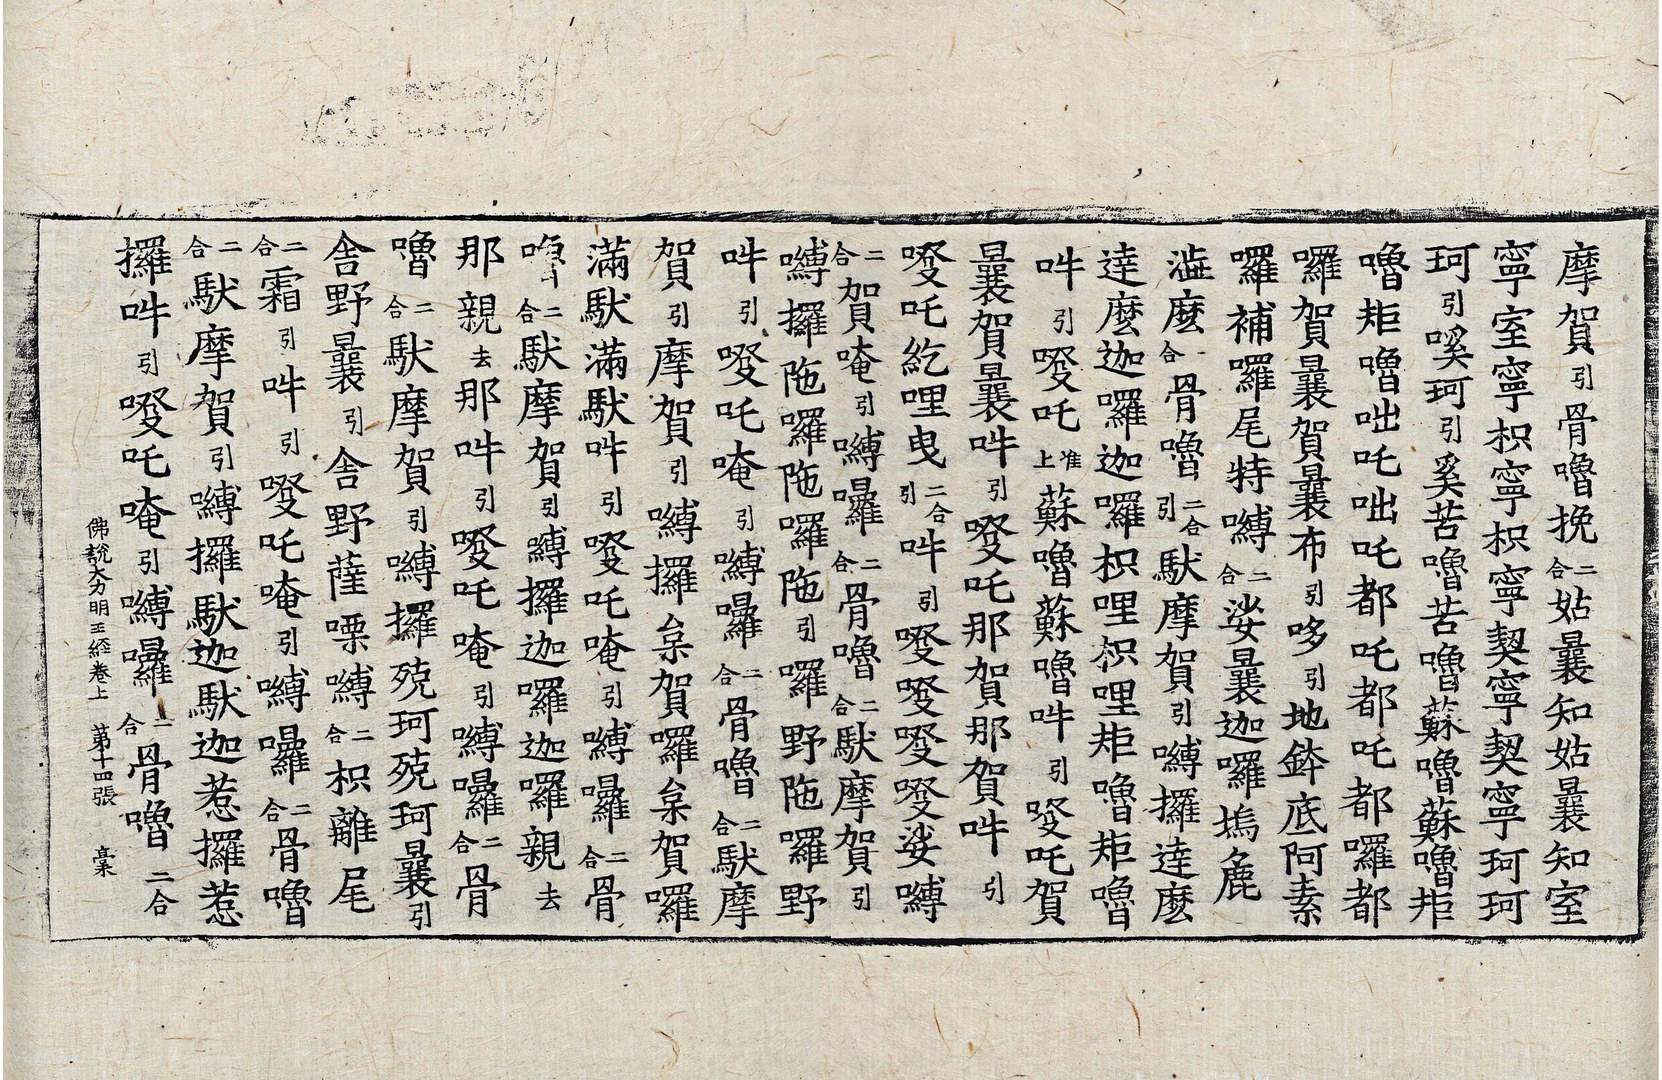 摩賀引骨嚕挽二合姑曩知姑曩知室
寧室寧枳寧枳寧契寧契寧珂珂
珂引嗘珂引奚苦嚕苦嚕蘇嚕蘇嚕矩
嚕矩嚕咄吒咄吒都吒都吒都囉都
囉賀曩賀曩布引哆引地鉢底阿素
囉補囉尾特嚩二合娑曩迦囉塢麁
澁麽合骨嚕二合引馱摩賀引嚩攞達麽
達麽迦囉迦囉枳哩枳哩矩嚕矩嚕
吽引發吒准上蘇嚕蘇嚕吽引發吒賀
曩賀曩吽引發吒那賀那賀吽引
發吒紇哩曳二合引吽引發發發娑嚩
二合賀唵引嚩囉二合骨嚕二合馱摩賀引
嚩攞陁囉陁囉陁引囉野陁囉野
吽引發吒唵引嚩囉二合骨嚕二合馱摩
賀引摩賀引嚩攞枲賀囉枲賀囉
滿馱滿馱吽引發吒唵引嚩囉二合骨
嚕二合馱摩賀引嚩攞迦囉迦囉親去
那親去那吽引發吒唵引嚩囉二合骨
嚕二合馱摩賀引嚩攞殑珂殑珂曩引
舍野曩引舍野薩㗚嚩二合枳離尾
二合霜引吽引發吒唵引嚩囉二合骨嚕
二合馱摩賀引嚩攞馱迦馱迦惹攞惹
攞吽引發吒唵引嚩囉二合骨嚕二合
佛說大力明王經卷上　第十四張　藁